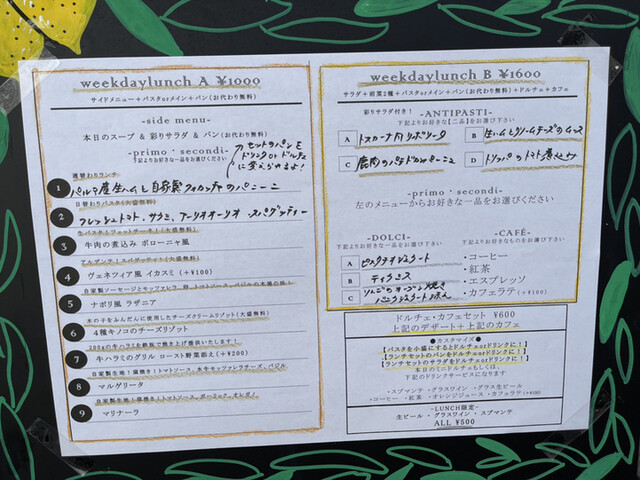 weekdaylunch A ¥1000
サイドメニュー＋パスタorメイン＋パン(お代わり無料)
-side menu-
本日のスープ & 彩りサラダ & パン(お代わり無料)
-primo・secondi-
下記よりお好きな一品をお選びください
セットのパンを
ドリンク or ドルチェ
に変えられるよ!
週替わりランチ
1 パルマ産生ハムと自家製フォカッチャのパニーニ
日替わりパスタ(大盛無料)
2 フレッシュトマト、サラミ、アーリオオーリオ スパゲッティー
生パスタ!フェットチーネ!(大盛無料)
3 牛肉の煮込み ボローニャ風
アルデンテ!スパゲッティ!(大盛無料)
4 ヴェネツィア風 イカスミ(+¥100)
自家製ソーセージとモッツァレラ、卵、トマトソース、バジルの本場の味!
5 ナポリ風 ラザニア
米の子をふんだんに使用したチーズクリームリゾット(大盛無料)
6 4種キノコのチーズリゾット
200gの牛ハラミを鉄板で焼き上げ提供いたします!
7 牛ハラミのグリル ロースト野菜添え(+¥200)
自家製生地!窯焼き!トマトソース、水牛モッツァレラチーズ、バジル
8 マルゲリータ
自家製生地!窯焼き!トマトソース、ガーリック、オレガノ
9 マリナーラ
weekdaylunch B ¥1600
サラダ＋前菜2種＋パスタorメイン＋パン(お代わり無料)＋ドルチェ＋カフェ
彩りサラダ付き! -ANTIPASTI-
下記よりお好きな【二品】をお選び下さい
A トスカーナ風リボリータ
B 生ハムとクリームチーズのムース
C 鹿肉のパテドカンパーニュ
D トリッパのトマト煮込み
-primo・secondi-
左のメニューからお好きな一品をお選びください
-DOLCI-
下記よりお好きな一品をお選び下さい
A ピスタチオジェラート
B ティラミス
C りんごのオーブン焼き
バニラジェラート添え
-CAFÉ-
下記よりお好きなものをお選び下さい
・コーヒー
・紅茶
・エスプレッソ
・カフェラテ(+¥100)
ドルチェ・カフェセット ¥600
上記のデザート＋上記のカフェ
●カスタマイズ●
【パスタを小盛にするとドルチェorドリンクに!】
【ランチセットのパンをドルチェorドリンクに!】
【ランチセットのサラダをドルチェorドリンクに!】
本日のミニドルチェもしくは、
下記のドリンクサービスになります
・スプマンテ ・グラスワイン ・グラス生ビール
・コーヒー ・紅茶 ・オレンジジュース ・カフェラテ(+¥100)
-LUNCH限定-
生ビール ・ グラスワイン ・ スプマンテ
ALL ¥500